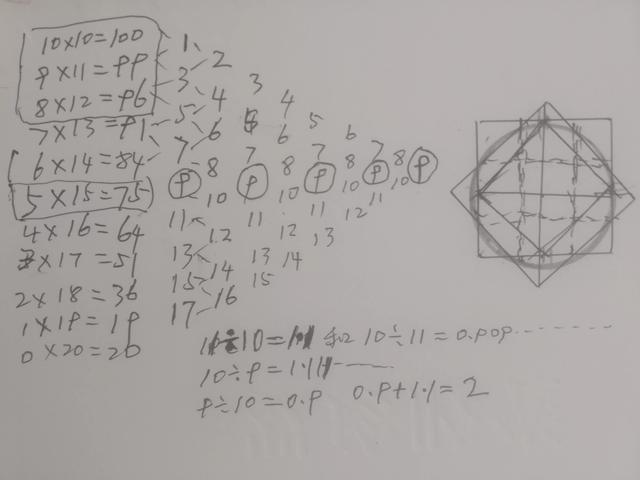 10×10=100
9×11=99
8×12=96
7×13=91
6×14=84
5×15=75
4×16=64
3×17=51
2×18=36
1×19=19
0×20=20
1 2
3 4 3 4
5 6 6 5 6
7 8 7 8 7 8 7 8
9 10 9 10 9 10 9 10 9
11 12 11 12 11 12 11
13 14 13 14 13
15 16 15
17
11÷10=1.1 和 10÷11=0.909······
10÷9=1.111······
9÷10=0.9 0.9+1.1=2